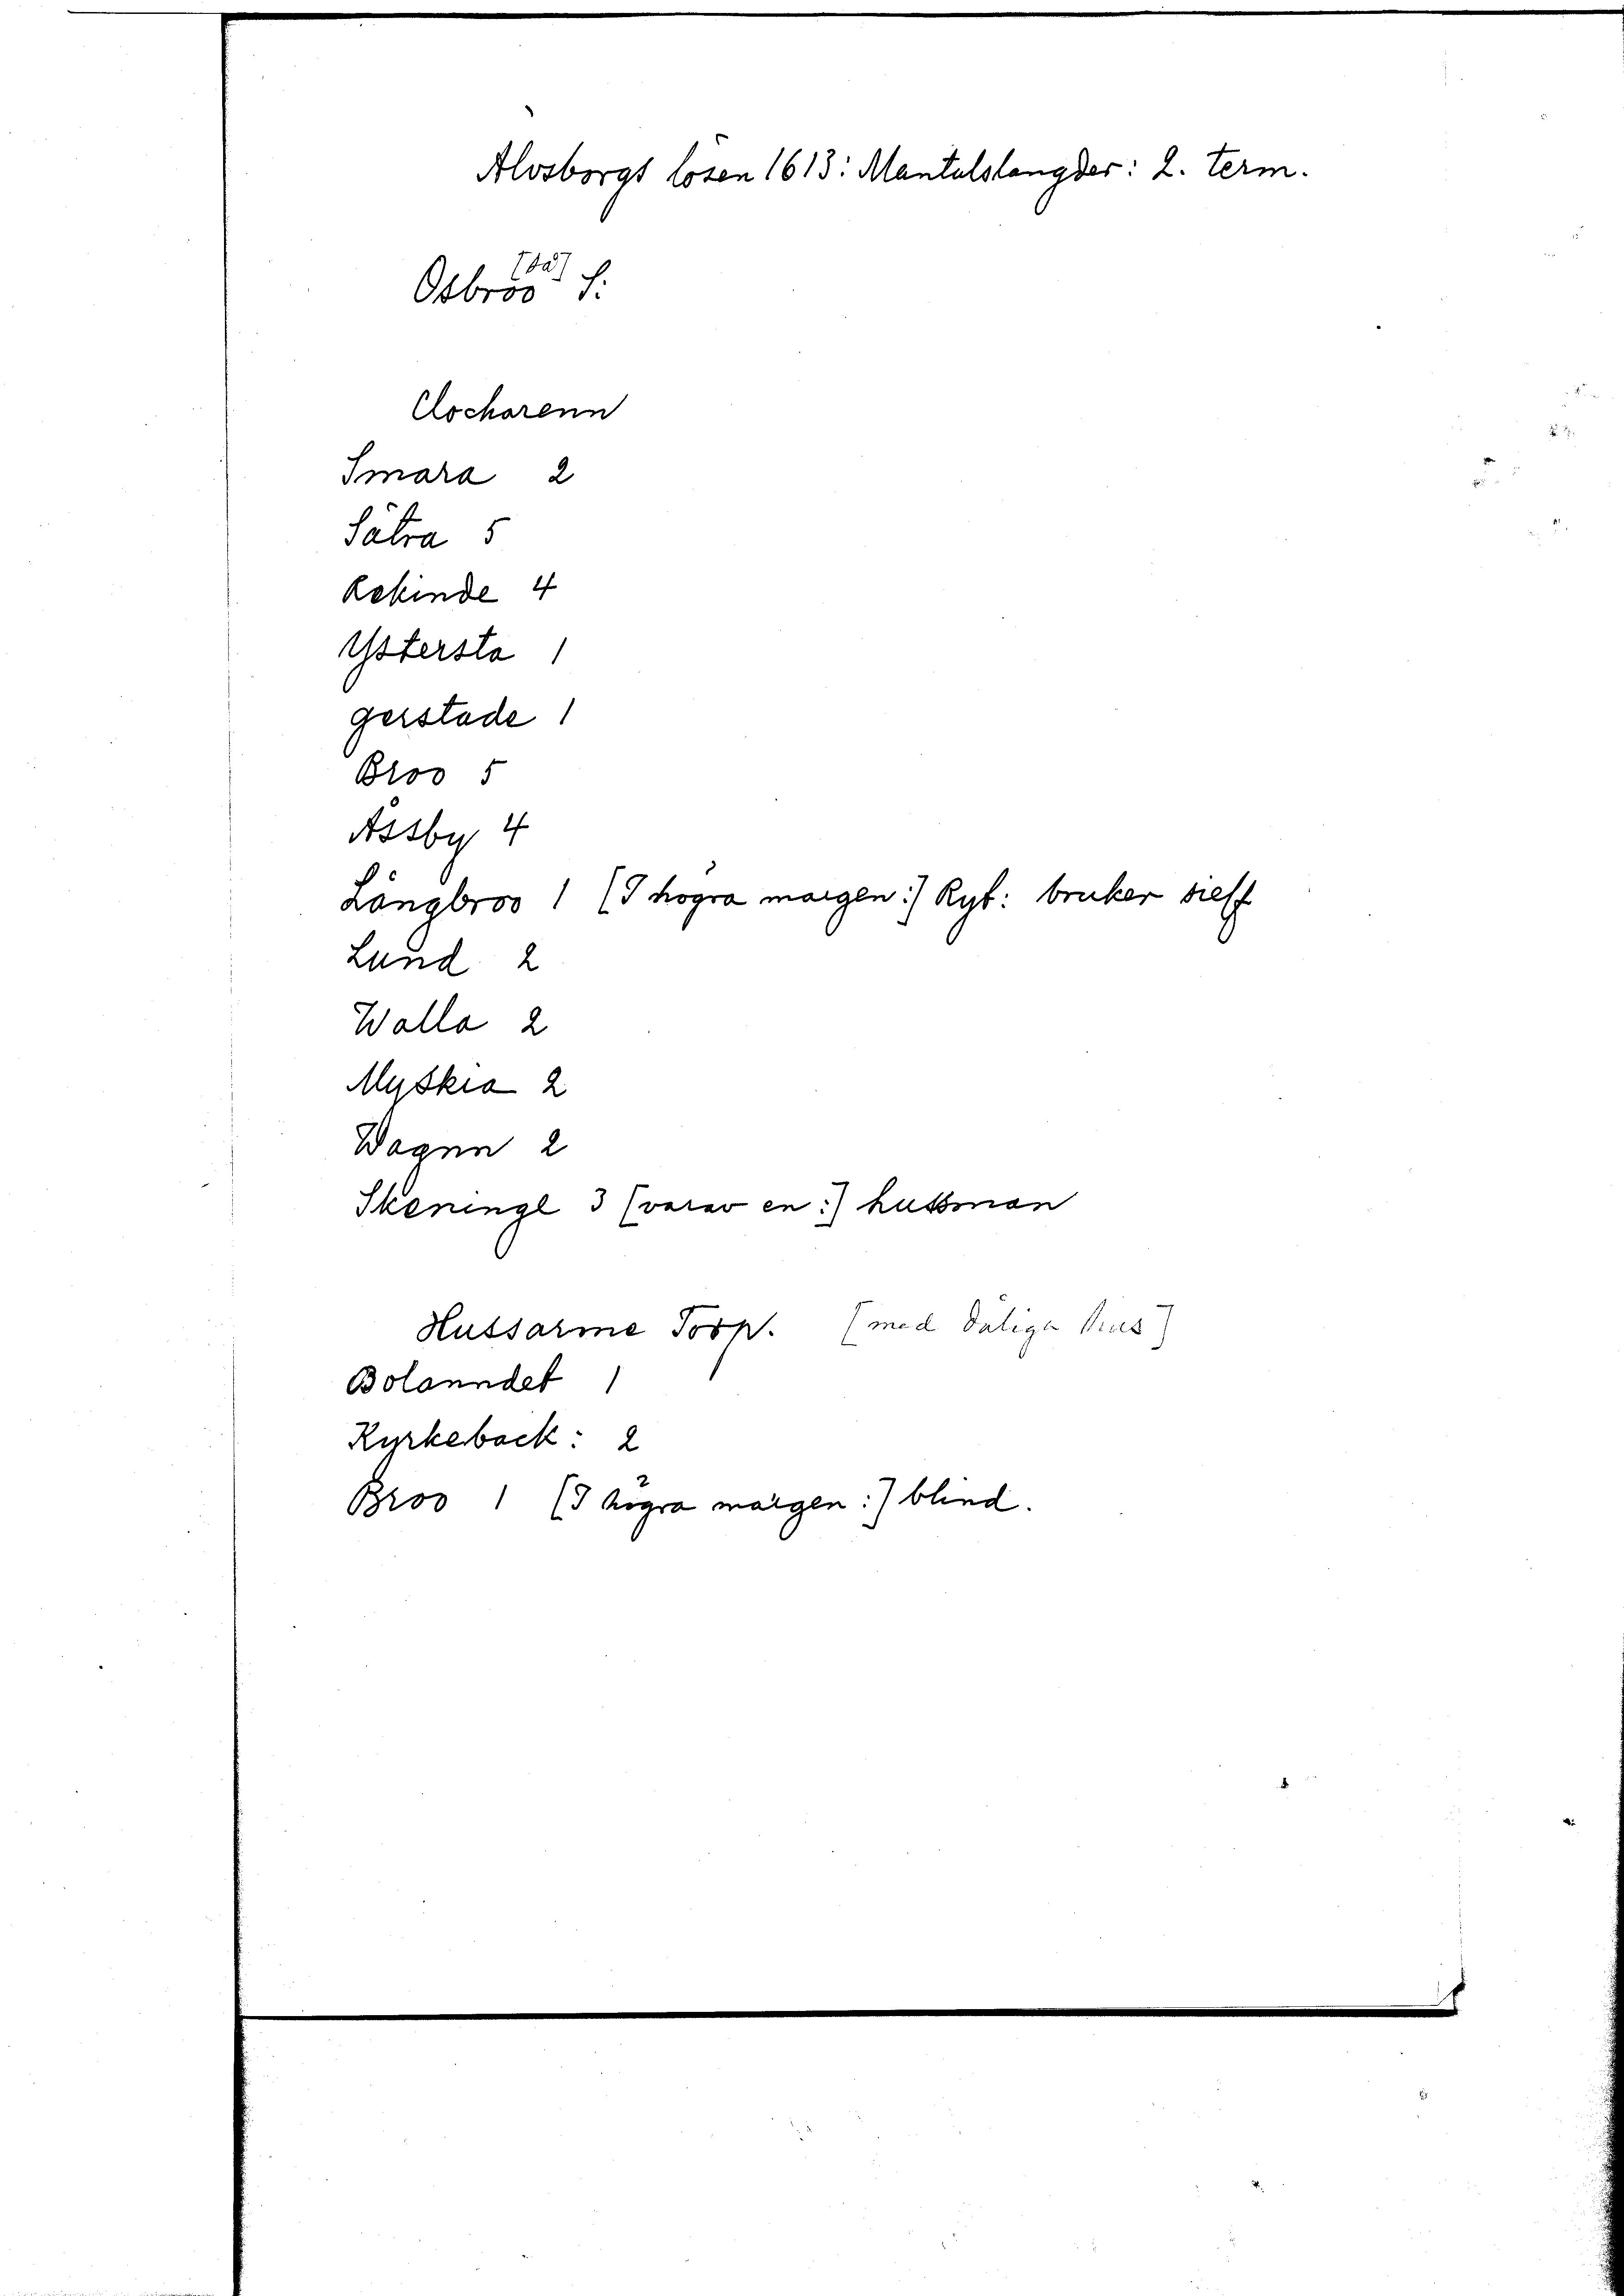 Älvsborgs lösen 1613: Mantalslängder: 2. term.
Osbroo S:
Clocharenn
Smara 2
Sätra 5
Rekinde 4
Ystersta 1
gerstade 1
Broo 5
Åssby 4
Långbroo 1 (I högra margen:) Ryt: bruker sielf
Lund 2
Walla 2
Myskia 2
Wagnn 2
Skeningl 3 (varav en:) hussman
Hussarme Torp. [med dåliga hus]
Bolanndet 1
Kyrkeback: 2
Broo 1 (I högra margen:) blind.